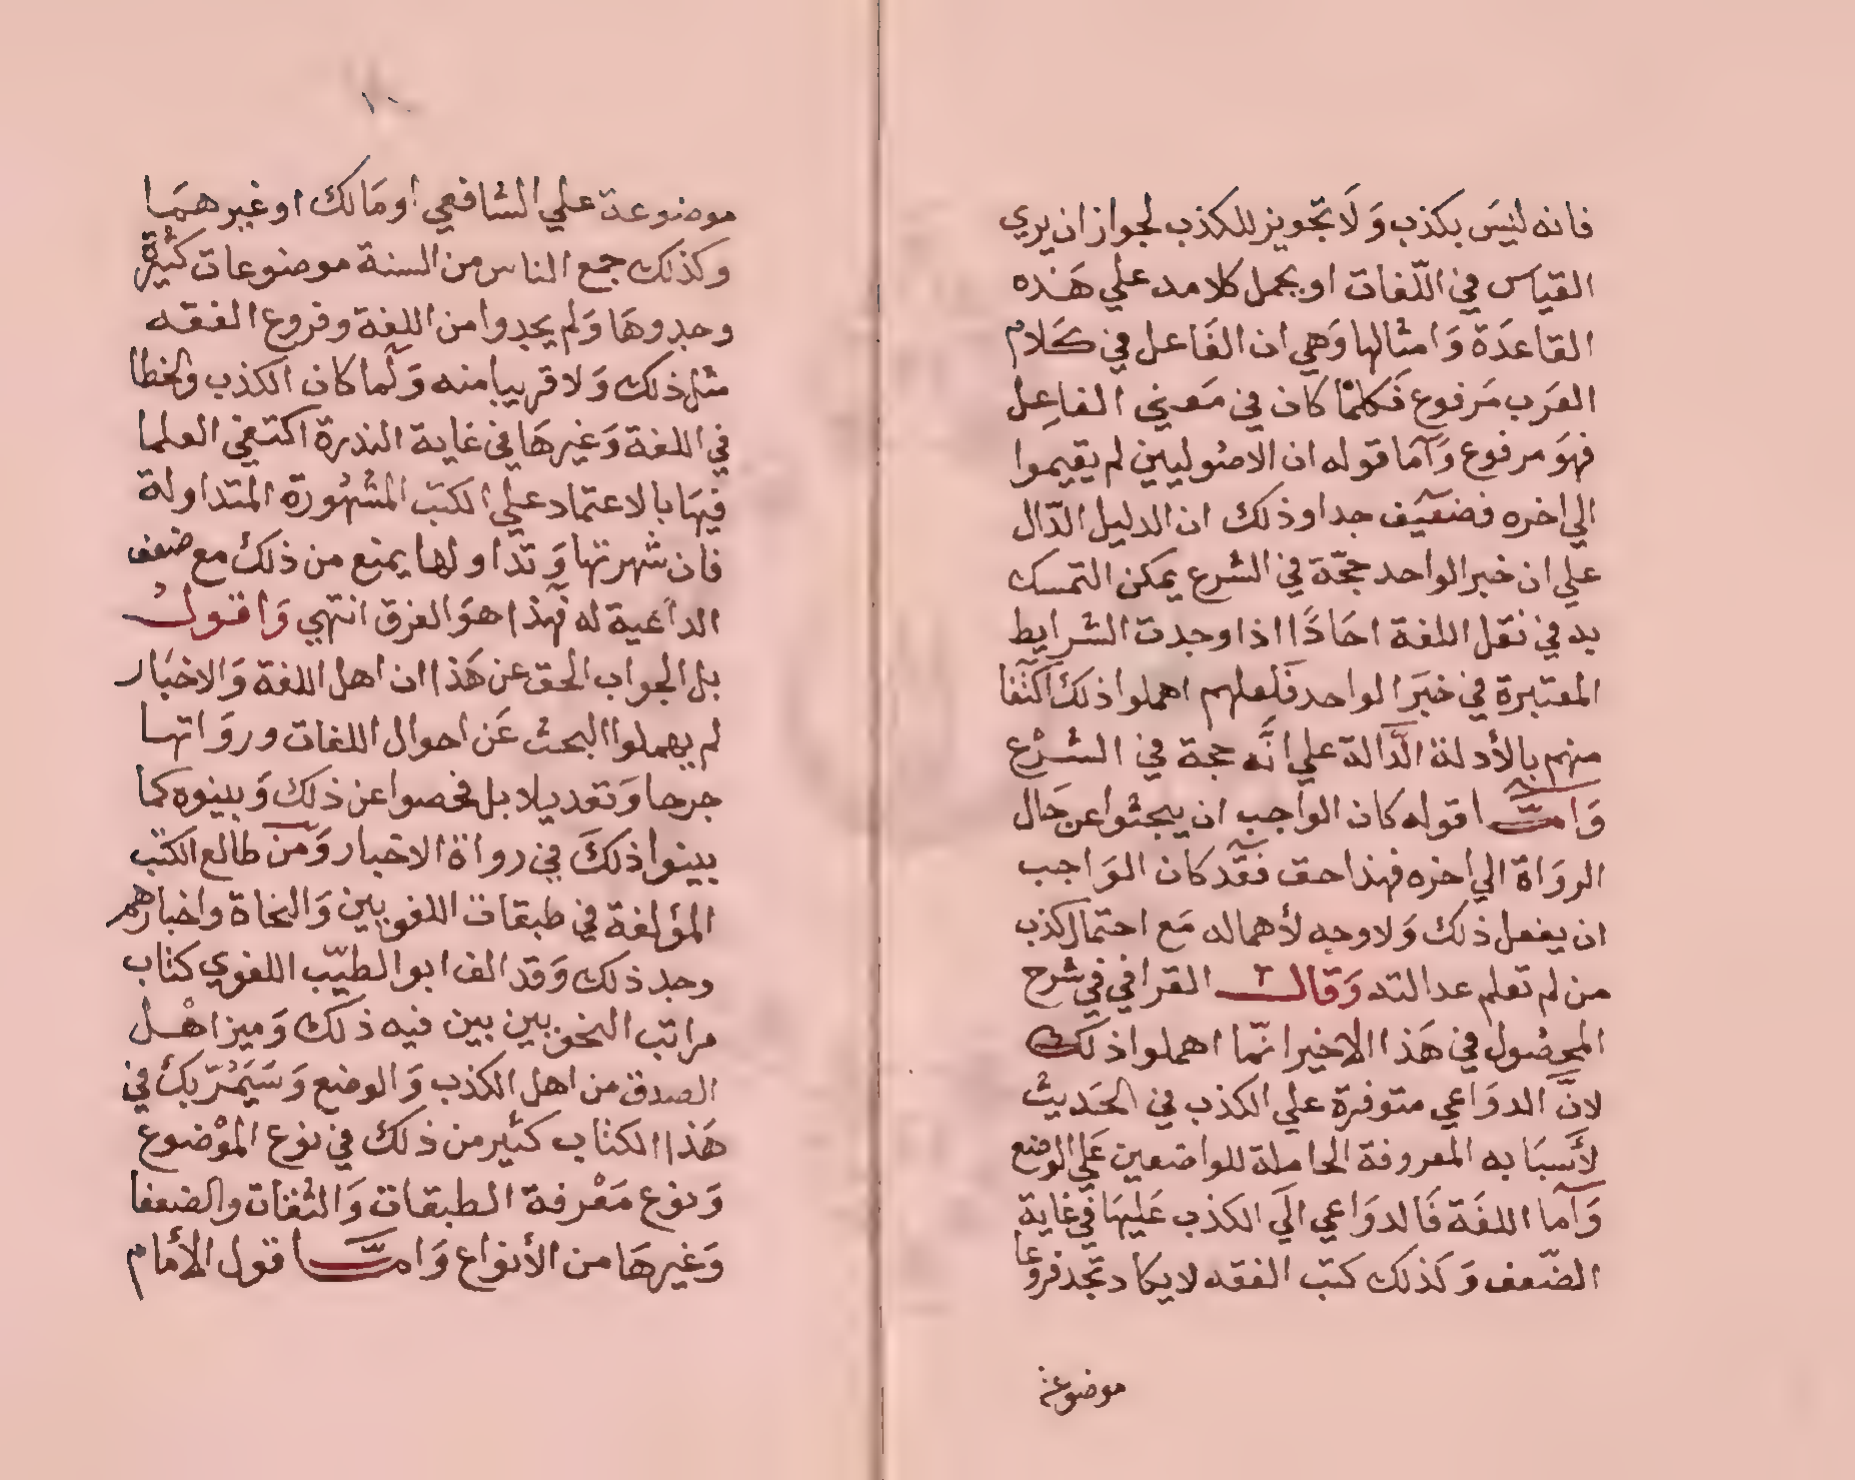 فانه ليَس بكذب وَلَا تجويز للكذب لجواز ان يري
القيَاس في اللّغات او يحمل كلامه علي هَذه
القاعدَة وَامثالها وَهي ان الفَاعل في كَلام
العرَب مَرفوع فَكلمّا كان في مَعني الفاعِل
فهوَ مرفوع وَآما قوله ان الاصُوليين لم يقيموا
الي اخره فضعَيف جدا وذلك ان الدليل الدّال
علي ان خبر الواحد حجّة في الشرع يمكن التمسك
به في نقل اللغة احَادًا اذا وجدت الشرايط
المعتبرة في خبَر الواحد فَلعلهم اهملوا ذلكَ اكتفا
منهم بالأدلة الدَّالة علي انَّه حجة في الشرْع
وَامّا قوله كان الواجب ان يبحثوا عن حَال
الروَاة الي اخره فهذا حق فقَد كان الوَاجب
ان يفعل ذلك وَلا وجه لأهماله مَع احتمال كذب
من لم تعلم عدالته وَقال القرافي في شرح
المحصُول في هَذا الاخير انمّا اهملوا ذلك
لانَّ الدوَاعي متوفرة علي الكذب في الحَديث
لأَسبَابه المعروفة الحاملة للواضعين عَلي الوضع
وَآما اللغَة فَالدوَاعي الَي الكذب عَليهَا في غاية
الضّعف وَكذلك كتب الفقه لا يكاد تجد فروعا
موضوعة
١٠
موضوعة علي الشافعي او مَالك او غيرهمَا
وكذلك جمع الناس من السنة موضوعات كثيرة
وجدوهَا وَلم يجدوا من اللغة وفروع الفقه
مثل ذلك وَلا قريبا منه وَلّما كان الكذب والخطا
في اللغة وَغيرهَا في غاية الندرة اكتفي العلما
فيهَا بالاعتماد علي الكتب المشهُورة المتداولة
فان شهرتها وَتداولها يمنع من ذلك مع ضعف
الداعَية له فهَذا هوَ الفرق انتهي وَاقول
بل الجواب الحق عن هَذا ان اهل اللغة وَالاخبَار
لم يهملوا البحث عَن احوال اللغات وروَاتها
جرحا وَتعديلا بل فحصوا عن ذلك وَبينوه كما
بينوا ذلكَ في رواة الاخبار وَمَن طالع الكتب
المؤلفة في طبقات اللغويين وَالنحاة واخبارهم
وجد ذلك وَقد الف ابو الطيّب اللغوي كتاب
مراتب النحويين بين فيه ذلك وَميز اهْل
الصدق من اهل الكذب وَالوضع وَسَيَمُرّ بك في
هَذا الكتاب كثير من ذلك في نوع الموْضوع
وَنوع مَعْرفة الطبقات وَالثقات والضعفا
وَغيرهَا من الأنواع وَامّا قول الأمام